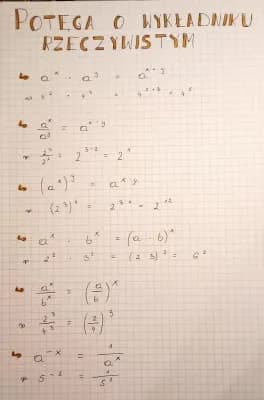 POTĘGA O WYKŁADNIKU
RZECZYWISTYM
aˣ · aʸ = aˣ⁺ʸ
4² · 4³ = 4²⁺³ = 4⁵
aˣ/aʸ = aˣ⁻ʸ
2³/2² = 2³⁻² = 2¹
(aˣ)ʸ = aˣ·ʸ
(2³)⁴ = 2³·⁴ = 2¹²
aˣ · bˣ = (a · b)ˣ
2² · 3² = (2·3)² = 6²
aˣ/bˣ = (a/b)ˣ
2³/4³ = (2/4)³
a⁻ˣ = 1/aˣ
5⁻² = 1/5²